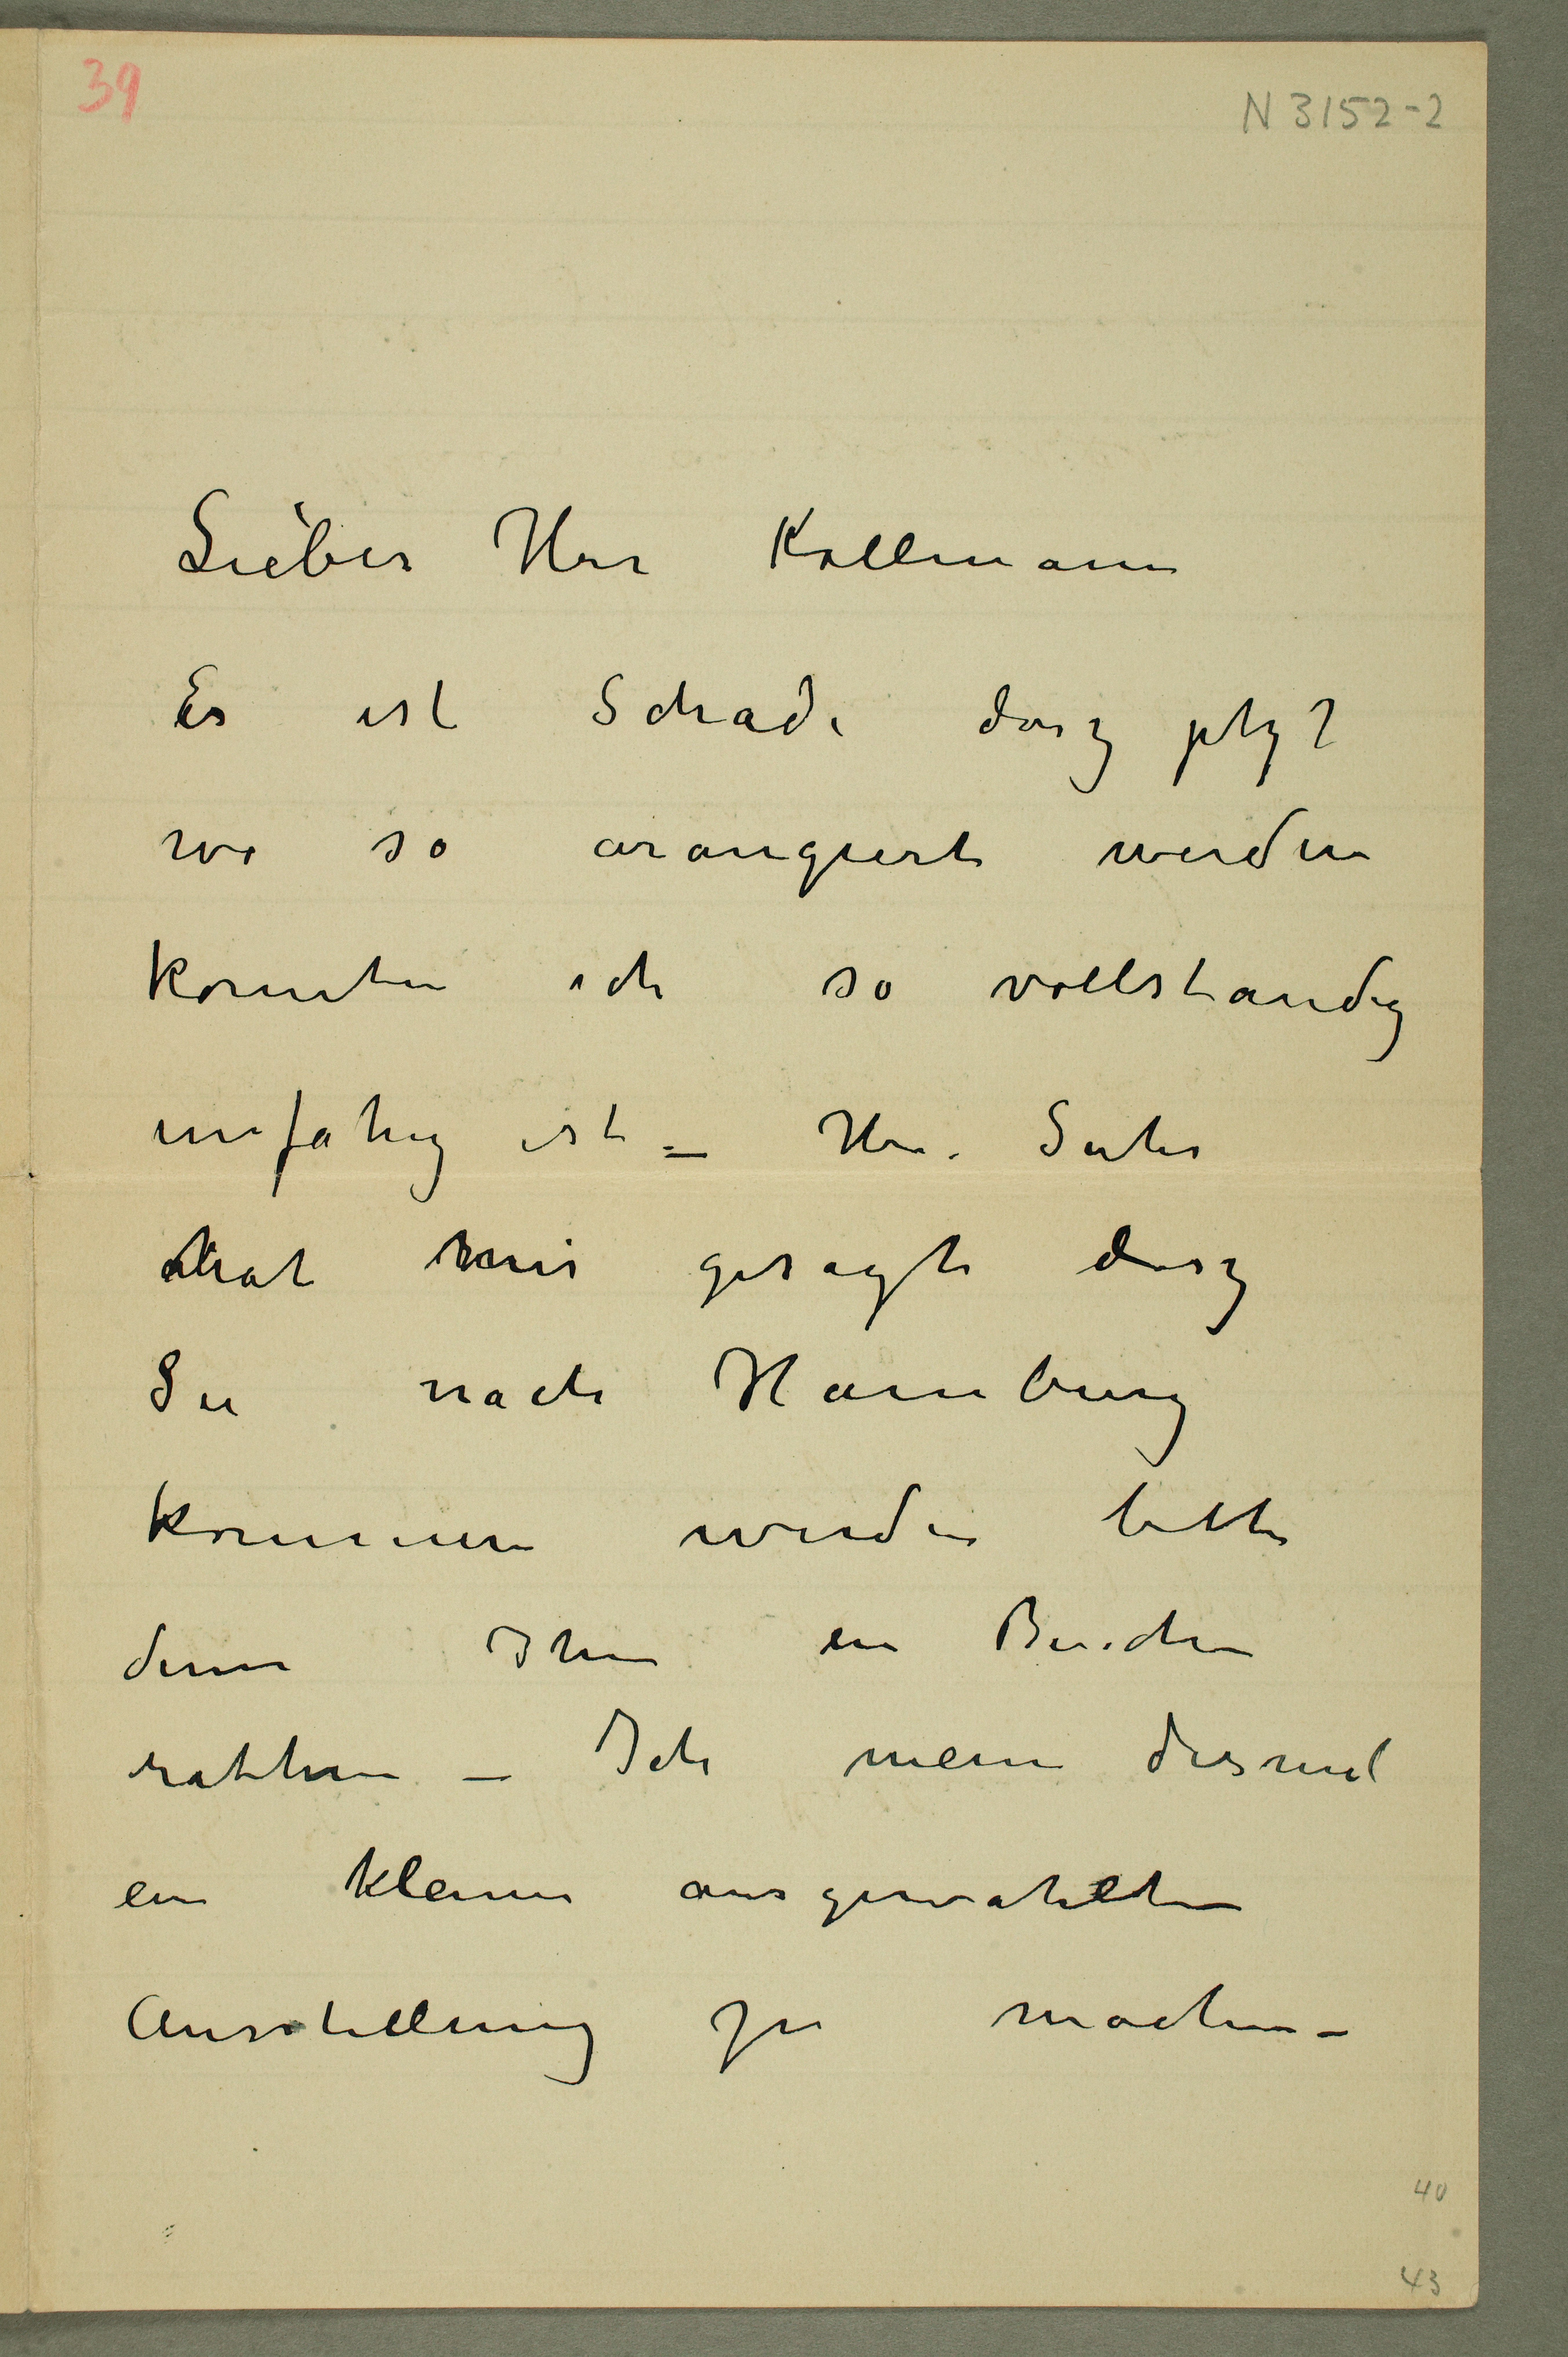 39
N 3152-2
Lieber Herr Kollmann
Es ist Schade dasz jetzt
wo so arangiert werden
konnten ich so vollstandig
unfähig ist – Herr. Suhr
hat mir gesagt dasz
Sie nach Hamburg
kommen werden bitte
denn Ihm en
rathen – Ich meine diesmal
ein kleine ausgewahlten
Ausstellung zu machen –
40
43